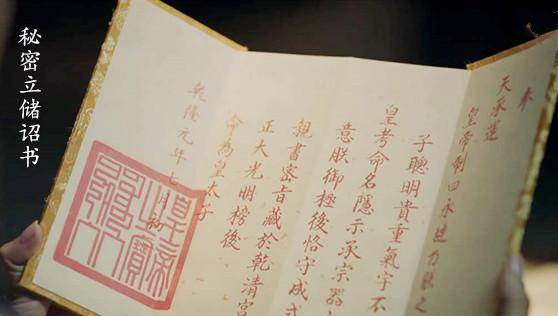 秘密立储诏书
奉
天承運
皇帝制曰永璉乃朕之
子聰明貴重氣宇不
皇考命名隱示承宗器
意朕御極後恪守成式
親書密旨藏於乾清宮
正大光明榜後
命為皇太子
乾隆元年七月初
皇帝之寶